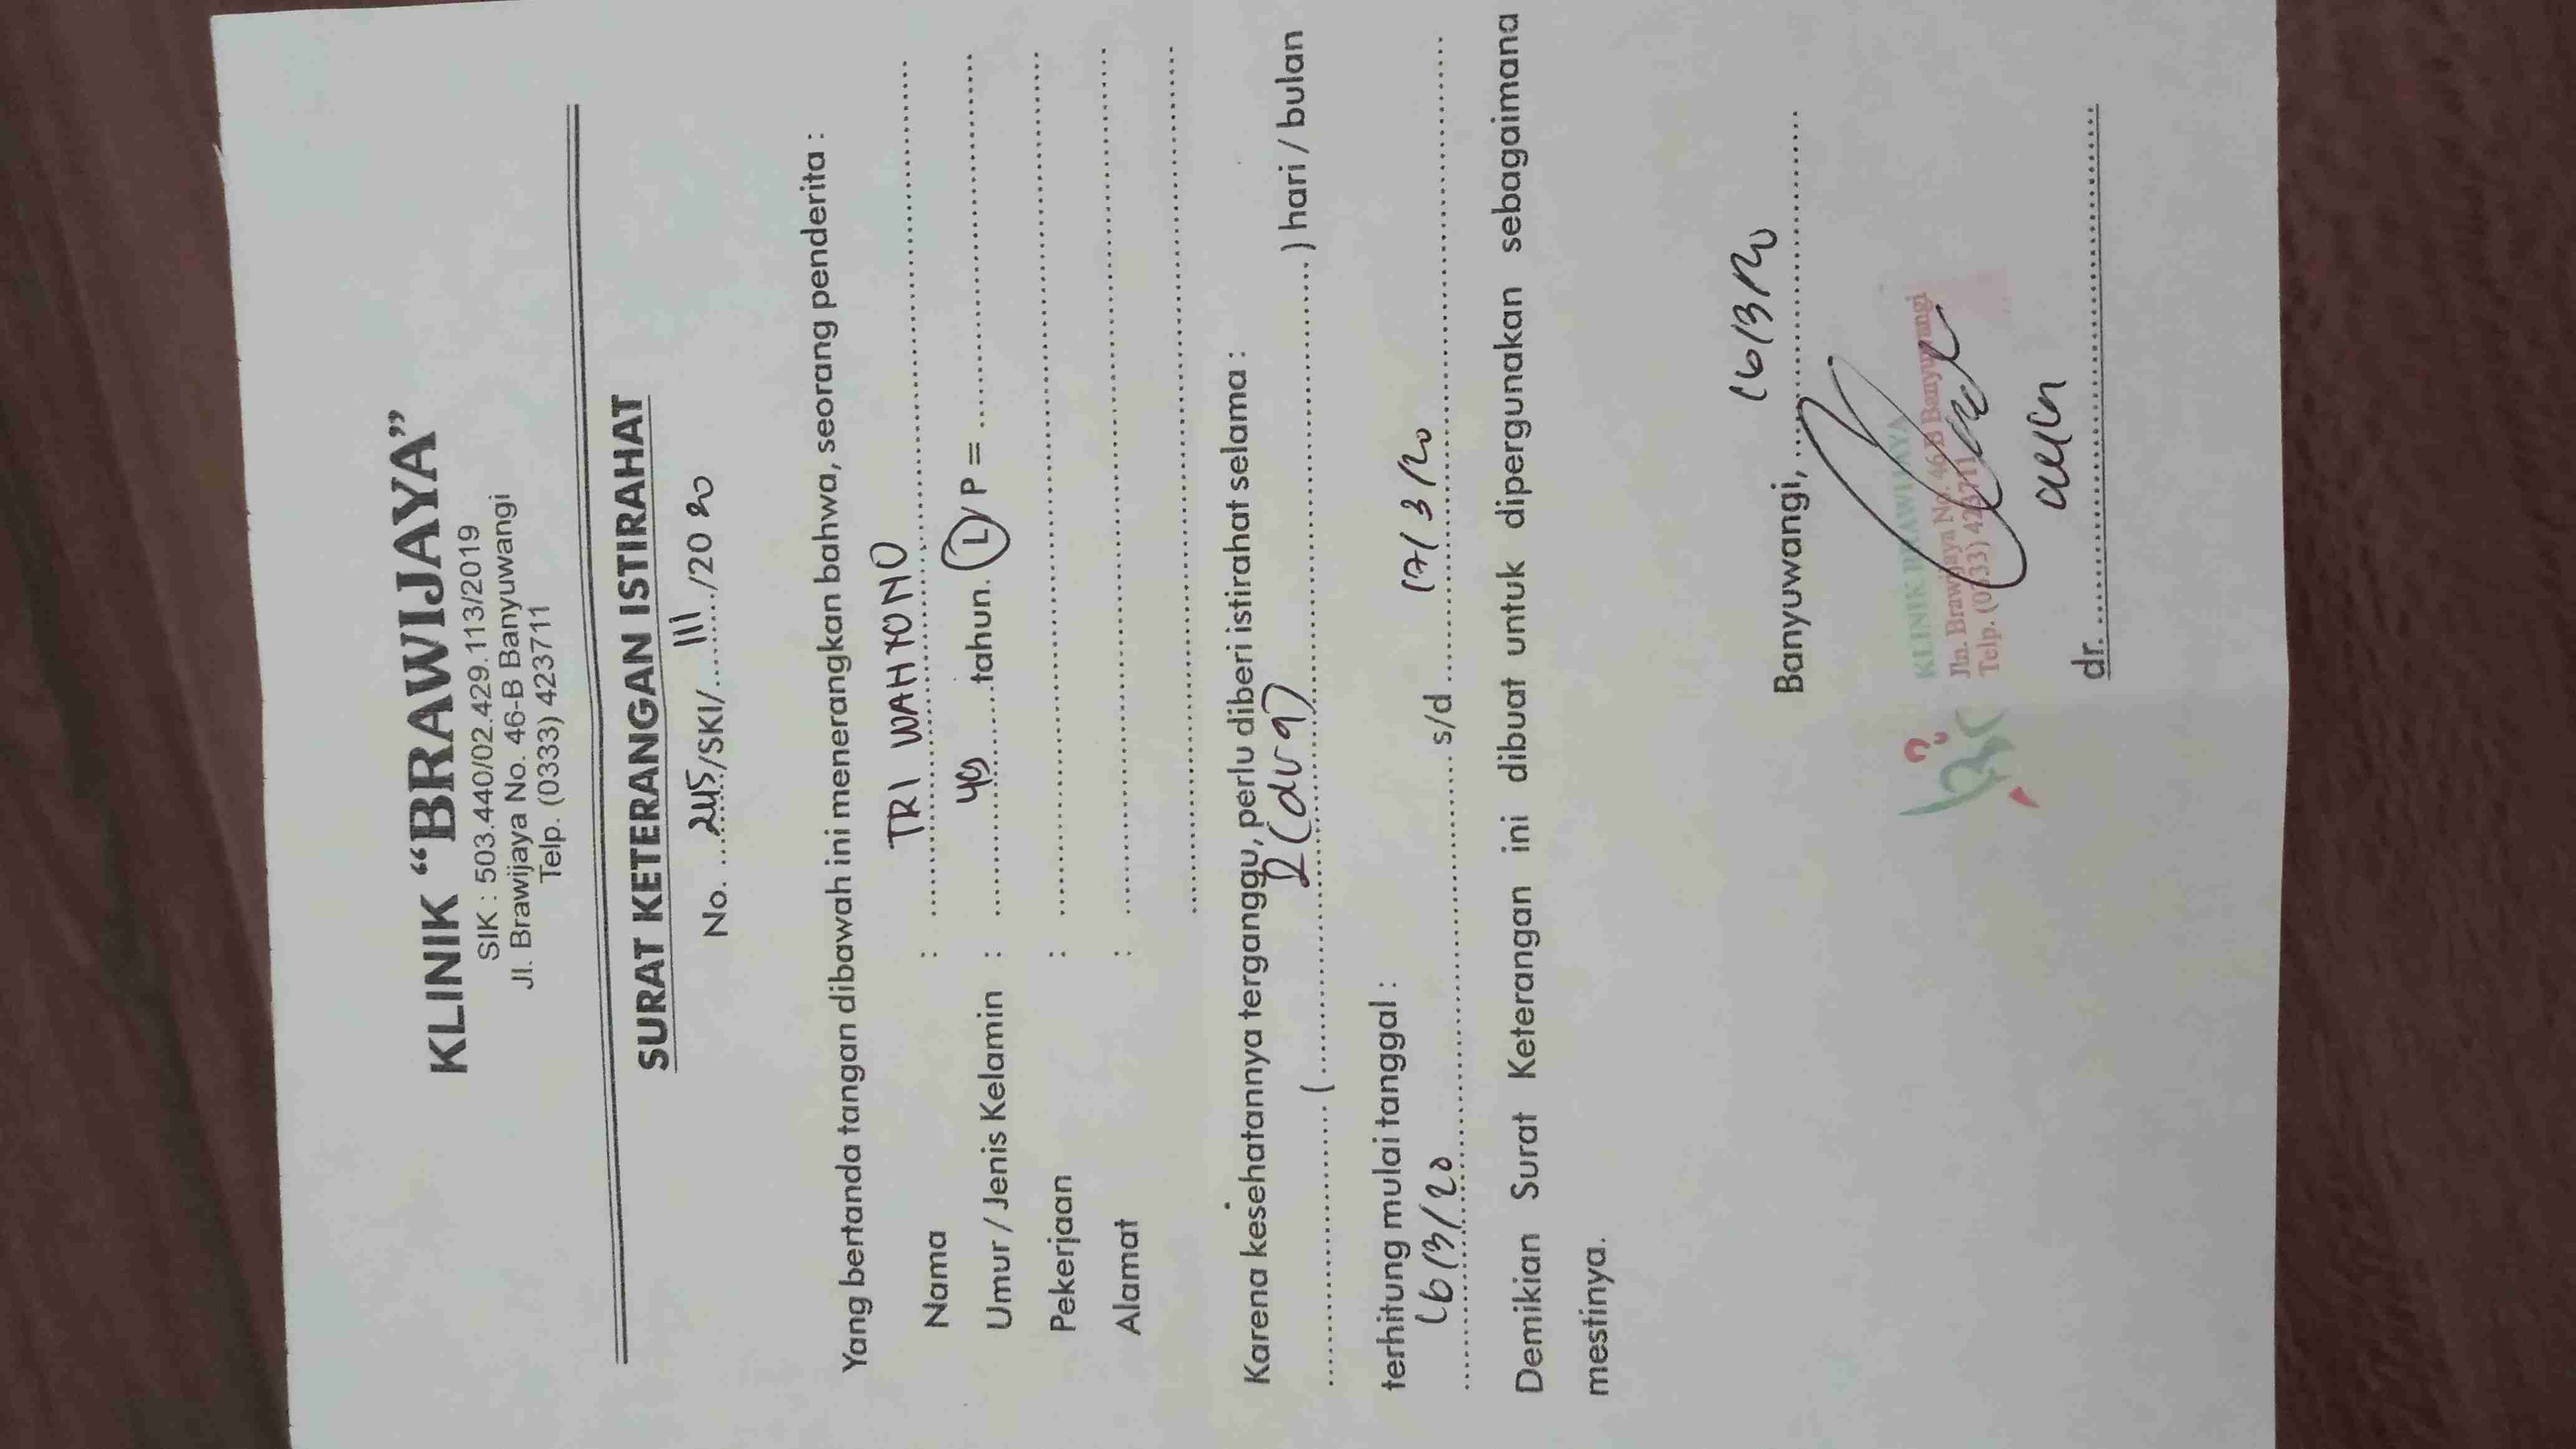 KLINIK “BRAWIJAYA”
SIK : 503.440/02.429.113/2019
Jl. Brawijaya No. 46-B Banyuwangi
Telp. (0333) 423711
SURAT KETERANGAN ISTIRAHAT
No. ...245/SKI/...III.../20 20
Yang bertanda tangan dibawah ini menerangkan bahwa, seorang penderita :
Nama : TRI WAHYONO
Umur / Jenis Kelamin : 49 tahun. L / P = ........
Pekerjaan : ........
Alamat : ........
Karena kesehatannya terganggu, perlu diberi istirahat selama :
........ ( 2 (dua) ........ ) hari / bulan
terhitung mulai tanggal :
16/3/20 ........ s/d ........ 17/3/20
Demikian Surat Keterangan ini dibuat untuk dipergunakan sebagaimana
mestinya.
Banyuwangi, 16/3/20
KLINIK BRAWIJAYA
Jln. Brawijaya No. 46 B Banyuwangi
Telp. (0333) 423711
dr. ........